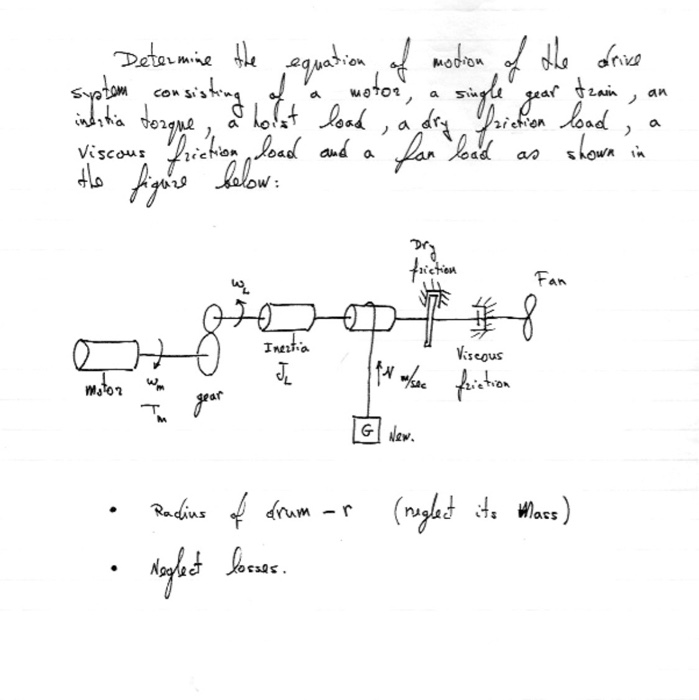 Determine the equation of motion of the drive
system consisting of a motor, a single gear train, an
inertia torque, a hoist load, a dry friction load, a
viscous friction load and a fan load as shown in
the figure below:
Dry
friction
Fan
ω_L
Inertia
J_L
Viscous
friction
motor
ω_m
T_m
gear
v m/sec
G New.
• Radius of drum - r (neglect its Mass)
• Neglect losses.